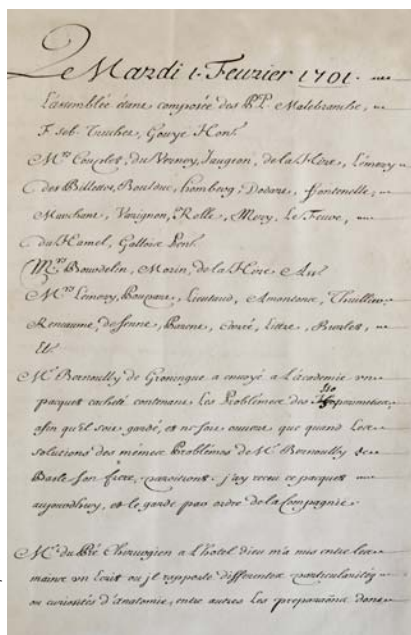 Le Mardi 1. Feurier 1701.
L'assemblée étant composée des PP. Malebranche,
F. Seb. Truchet, Gouye Hon.
Mrs Couplet, du Verney, Jaugeon, de la Hire, Lémery
des Billettes, Boulduc, homberg, Dodart, fontenelle,
Marchant, Varignon, Rolle, Mery, Le Feure,
du Hamel, Galloire Pens.
Mrs Bourdelin, Morin, de la Hire Ass.
Mrs Lémery, Poupart, Lieutaud, Amontons, Thuillier
Reneaume, de Senne, Parent, Carré, Littre, Burlet,
El.
Mr Bernoully de Groningue a envoyé a l'académie vn
pacquet cacheté contenant les Problémes des Isoperimetres
afin qu'il soit gardé, et ne soit ouvert que quand les
solutions des mémes Problémes de Mr Bernoully de
Basle son frere, paroitront. j'ay receu ce pacquet
aujourdhuy, et le garde par ordre de la Compagnie.
Mr du Pré Chirurgien a L'hôtel dieu m'a mis entre les
mains vn Ecrit ou jl rapporte differentes particularités
ou curiosités d'anatomie, entre autres les preparations dont